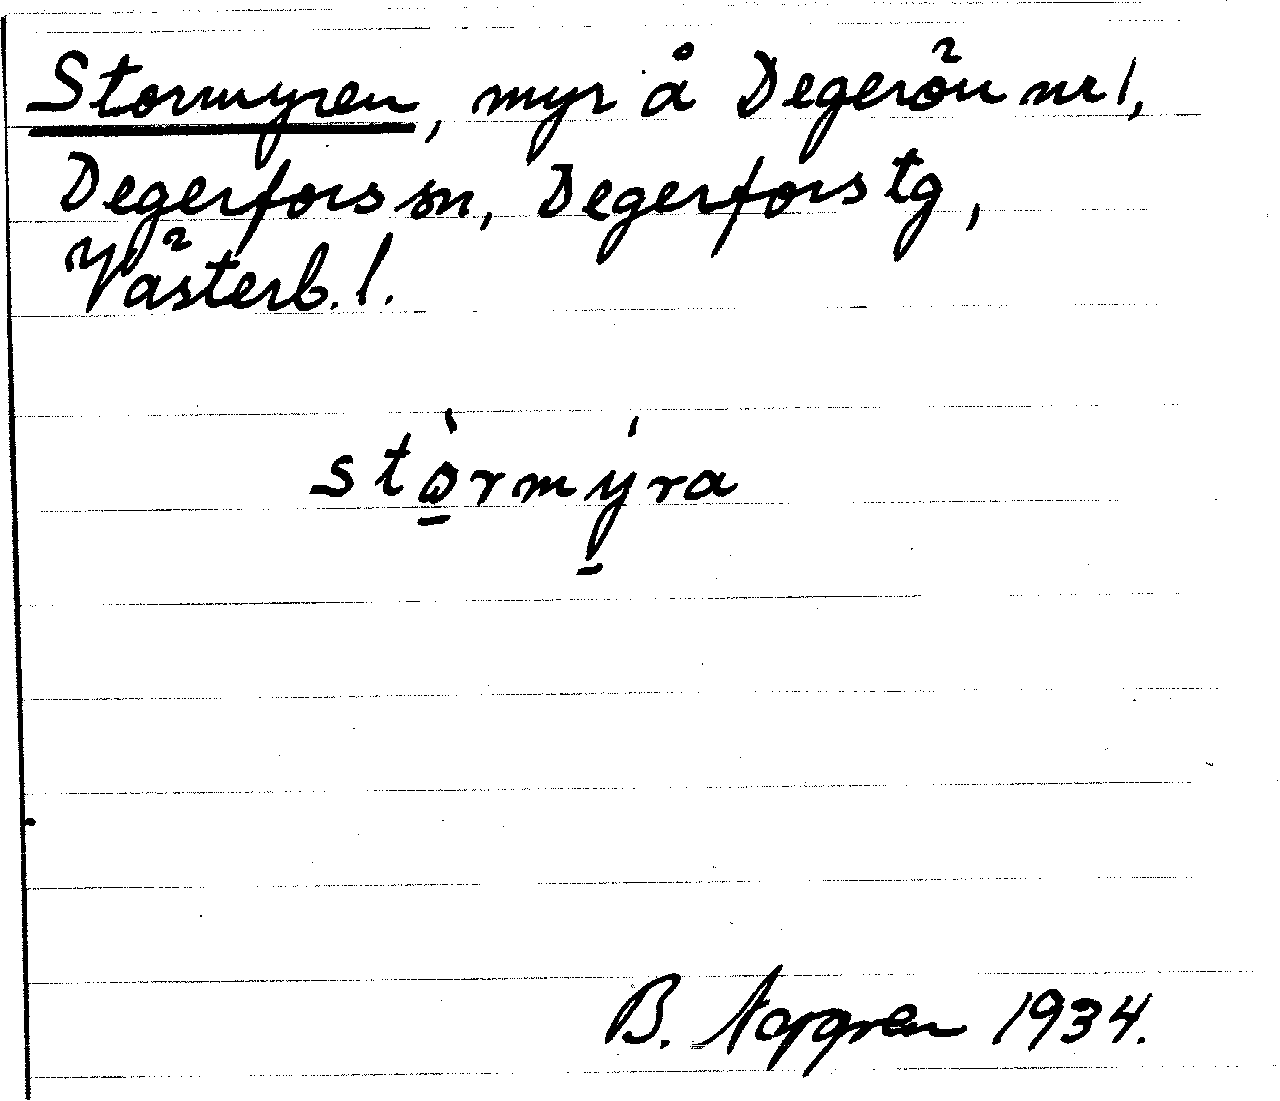 Stormyren, myr å Degerön nr 1,
Degerfors sn, Degerfors tg,
Västerb. l.
stòrmýra
B. Nygren 1934.